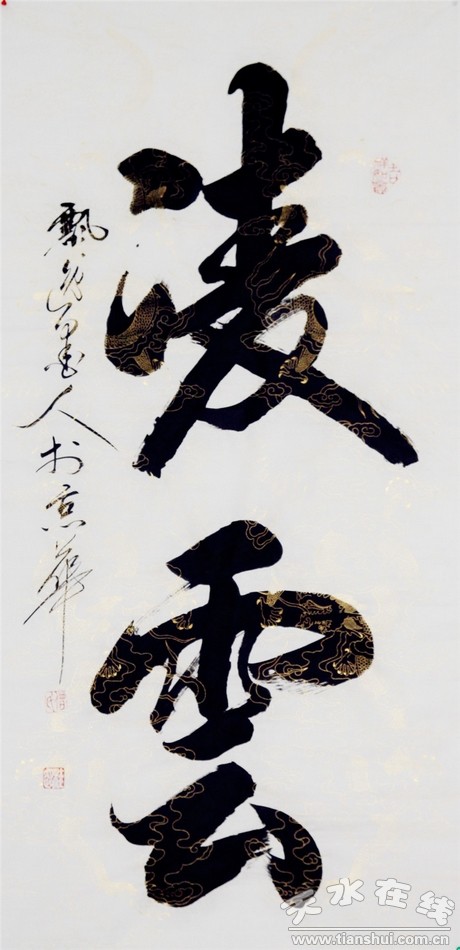 凌雲
飘逸墨人於京華
天水在线
www.tianshui.com.cn